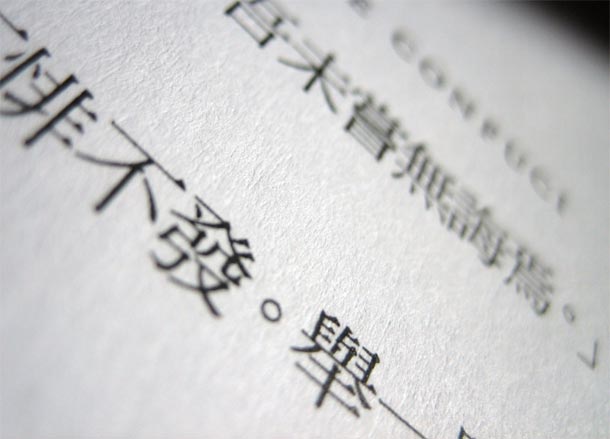 E CONFUCI
吾未嘗無誨焉。7
悱不發。舉一